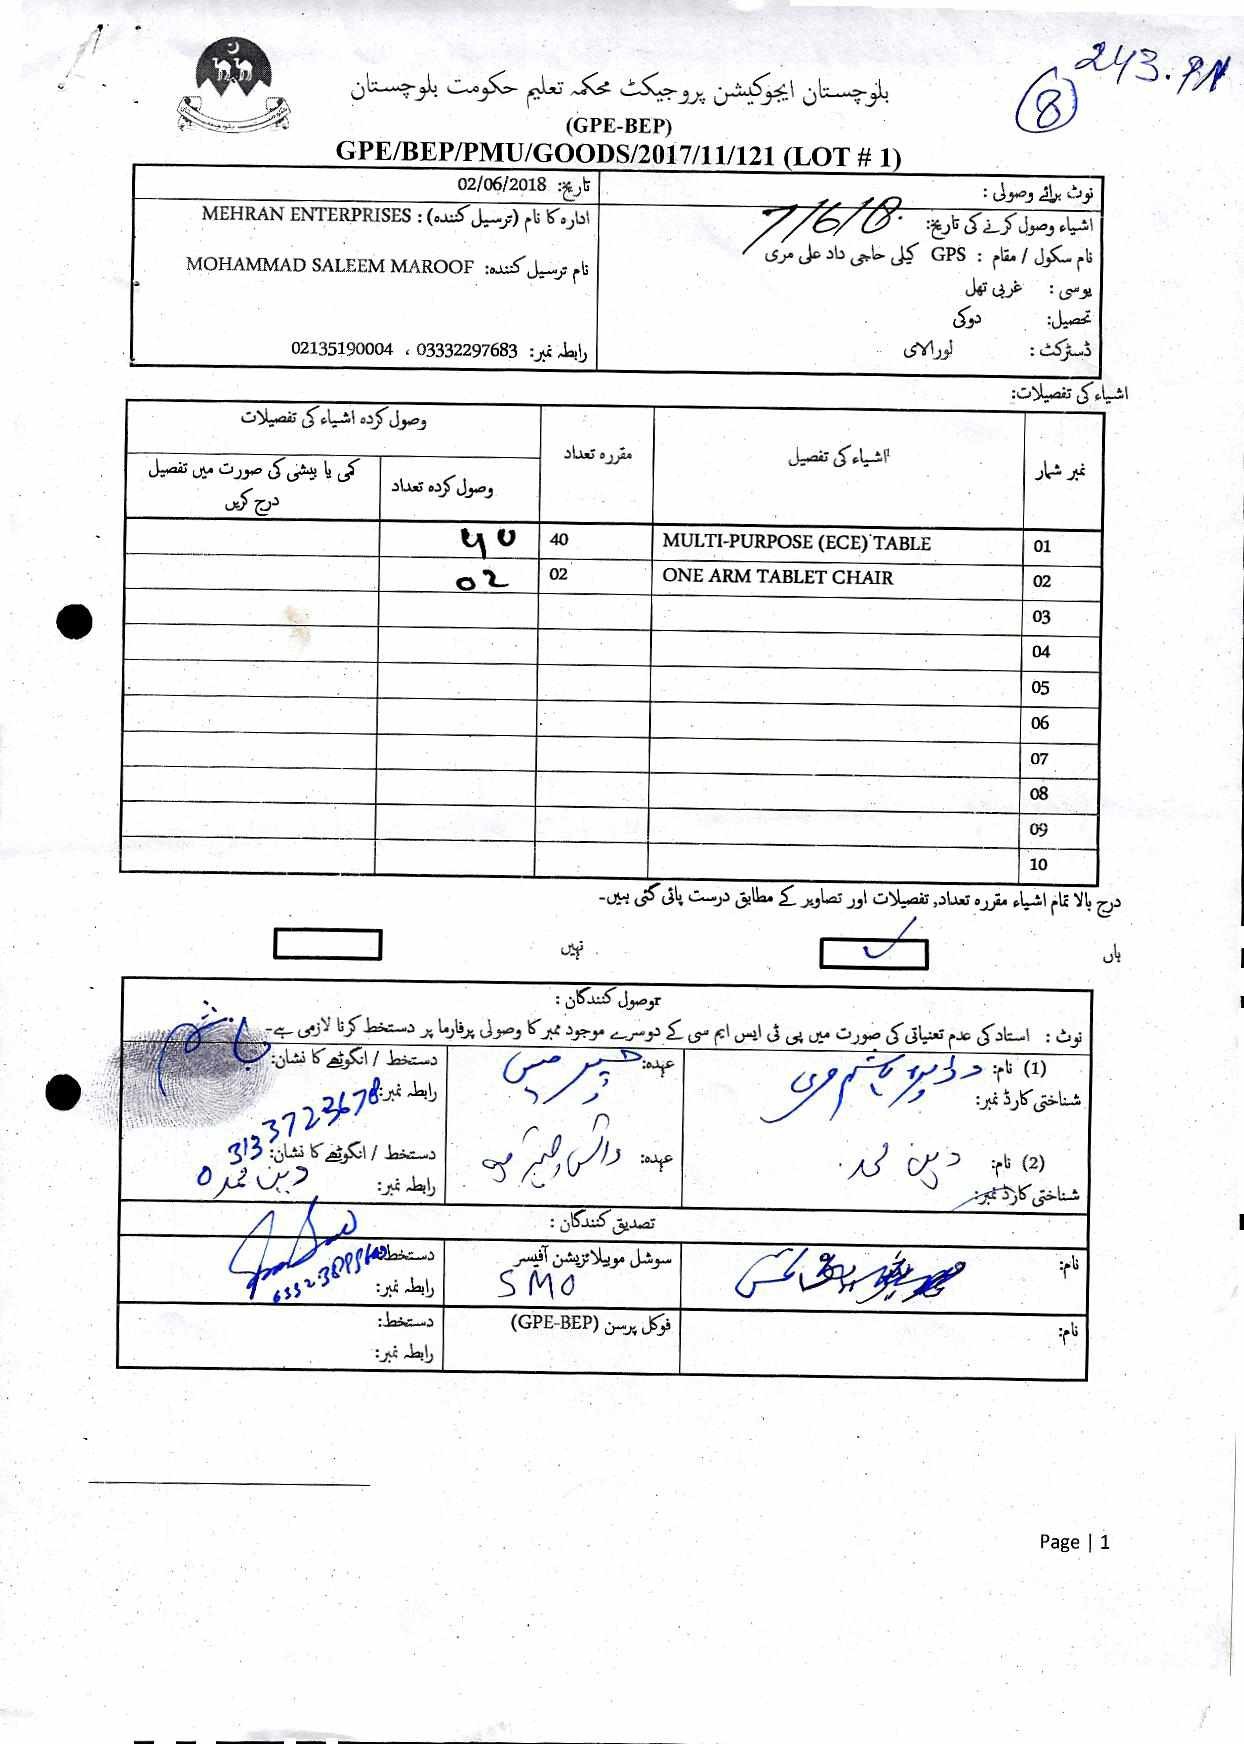 243.
8
بلوچستان ایجوکیشن پروجیکٹ محکمہ تعلیم حکومت بلوچستان
(GPE-BEP)
GPE/BEP/PMU/GOODS/2017/11/121 (LOT # 1)
نوٹ برائے وصولی :
تاریخ: 02/06/2018
اشیاء وصول کرنے کی تاریخ: 7/6/18
ادارہ کا نام (ترسیل کنندہ) : MEHRAN ENTERPRISES
نام سکول / مقام : GPS کیلی حاجی داد علی مری
نام ترسیل کنندہ: MOHAMMAD SALEEM MAROOF
یوسی : غربی تھل
تحصیل: دوکی
ڈسٹرکٹ : لورالای
رابطہ نمبر: 03332297683 ، 02135190004
اشیاء کی تفصیلات:
نمبر شمار اشیاء کی تفصیل مقررہ تعداد وصول کردہ اشیاء کی تفصیلات
وصول کردہ تعداد کمی یا بیشی کی صورت میں تفصیل درج کریں
01 MULTI-PURPOSE (ECE) TABLE 40 40
02 ONE ARM TABLET CHAIR 02 02
03
04
05
06
07
08
09
10
درج بالا تمام اشیاء مقررہ تعداد, تفصیلات اور تصاویر کے مطابق درست پائی گئی ہیں۔
ہاں نہیں
وصول کنندگان :
نوٹ : استاد کی عدم تعنیاتی کی صورت میں پی ٹی ایس ایم سی کے دوسرے موجود ممبر کا وصولی پرفارما پر دستخط کرنا لازمی ہے۔
(1) نام: عہدہ: دستخط / انگوٹھے کا نشان:
شناختی کارڈ نمبر: رابطہ نمبر: 3133723678
(2) نام: دین محمد عہدہ: دستخط / انگوٹھے کا نشان:
شناختی کارڈ نمبر: رابطہ نمبر: دین محمد
تصدیق کنندگان :
نام: سوشل موبیلائزیشن آفیسر دستخط:
SMO رابطہ نمبر:
نام: فوکل پرسن (GPE-BEP) دستخط:
رابطہ نمبر:
Page | 1